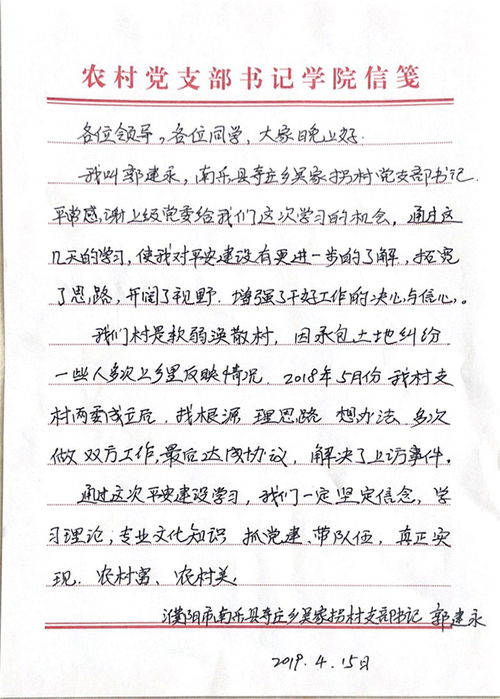 农村党支部书记学院信笺
各位领导，各位同学，大家晚上好.
我叫郭建永，南乐县寺庄乡吴家拐村党支部书记.
平常感谢上级党委给我们这次学习的机会，通过这
几天的学习，使我对平安建设有更进一步的了解，拓宽
了思路，开阔了视野.增强了干好工作的决心与信心。
我们村是软弱涣散村，因承包土地纠纷
一些人多次上乡里反映情况.2018年5月份我村支
村两委成立后，找根源 理思路 想办法.多次
做双方工作,最后达成协议，解决了上访事件。
通过这次平安建设学习，我们一定坚定信念，学
习理论；专业文化知识 抓党建、带队伍，真正实
现.农村富、农村美
濮阳市南乐县寺庄乡吴家拐村支部书记 郭建永
2019.4.15日